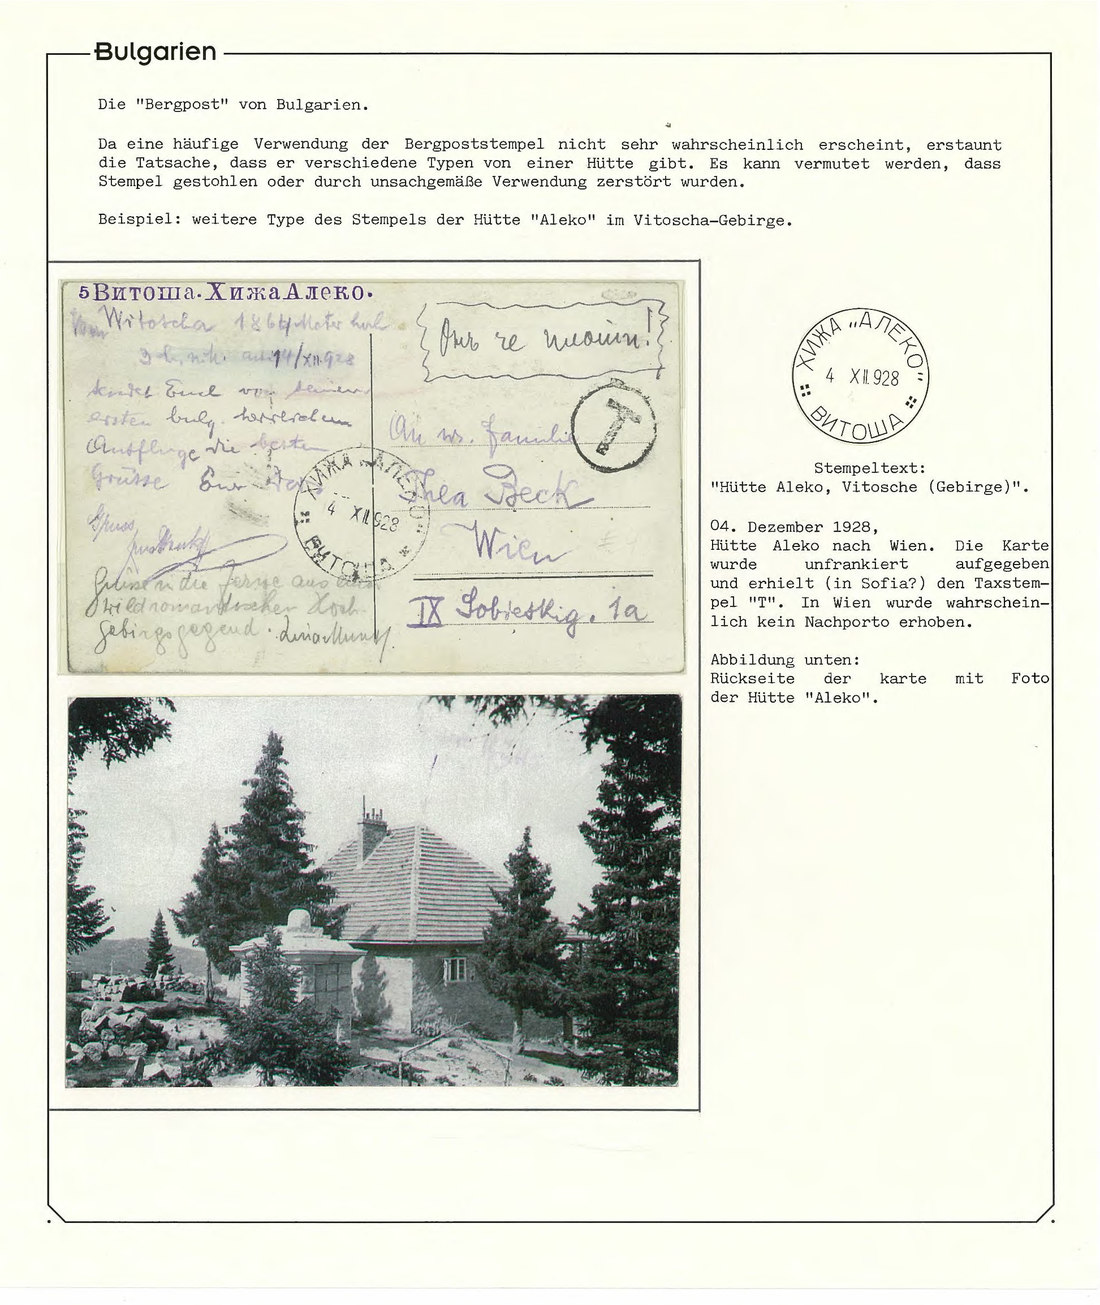 Bulgarien
Die "Bergpost" von Bulgarien.
Da eine häufige Verwendung der Bergpoststempel nicht sehr wahrscheinlich erscheint, erstaunt
die Tatsache, dass er verschiedene Typen von einer Hütte gibt. Es kann vermutet werden, dass
Stempel gestohlen oder durch unsachgemäße Verwendung zerstört wurden.
Beispiel: weitere Type des Stempels der Hütte "Aleko" im Vitoscha-Gebirge.
5 Витоша. Хижа Алеко.
Vom Witoscha 1864 Meter hoch
14/XII 928
sendet Euch von seinem
ersten bulg. herrlichen
Ausfluge die besten
Grüsse Euer
Gruss
Grüsse in die Ferne aus der
wildromantischen Hoch-
gebirgsgegend.
T
An w. Familie
Thea Beck
Wien
IX Sobieskig. 1a
ХИЖА „АЛЕКО"
4 XII 928
ВИТОША
ХИЖА „АЛЕКО"
4 XII.928
ВИТОША
Stempeltext:
"Hütte Aleko, Vitosche (Gebirge)".
04. Dezember 1928,
Hütte Aleko nach Wien. Die Karte
wurde unfrankiert aufgegeben
und erhielt (in Sofia?) den Taxstem-
pel "T". In Wien wurde wahrschein-
lich kein Nachporto erhoben.
Abbildung unten:
Rückseite der karte mit Foto
der Hütte "Aleko".